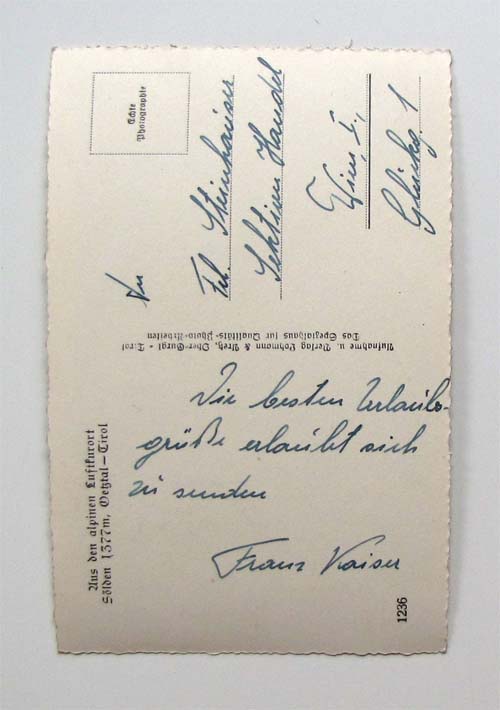 Aus dem alpinen Luftkurort
Sölden 1377m, Oetztal-Tirol
Die besten Urlaubs-
grüße erlaubt sich
zu senden
Franz Kaiser
1236
Aufnahme u. Verlag Lohmann & Aretz, Ober-Gurgl - Tirol
Das Spezialhaus für Qualitäts-Photo-Arbeiten
Echte
Photographie
An
Frl. Steinhauser
Sektion Handel
Wien I,
Gluckg. 1